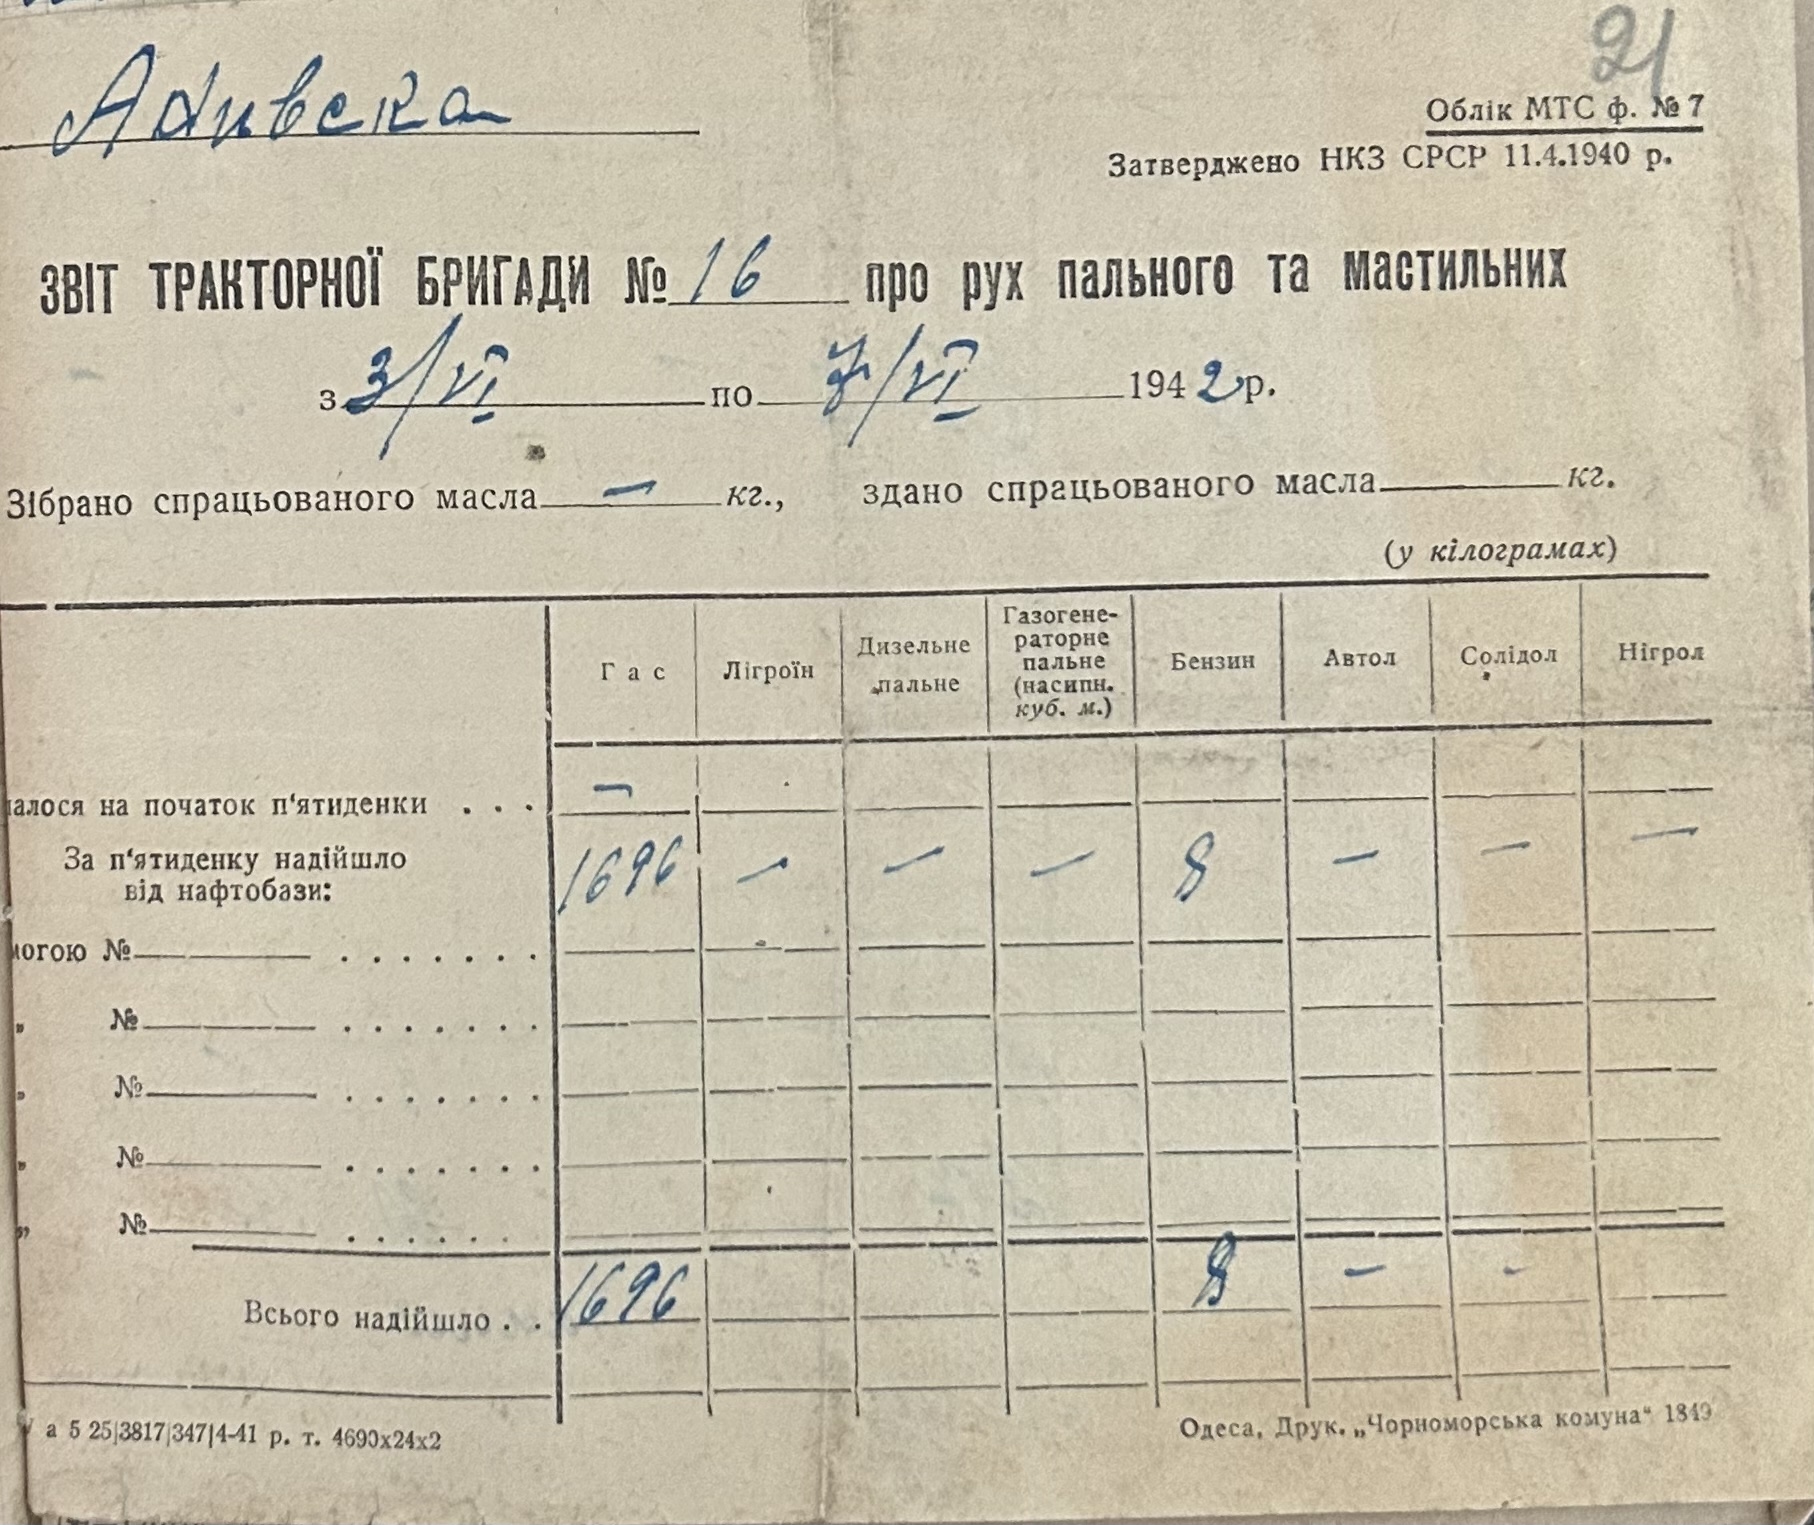 21
Адивска
Облік МТС ф. № 7
Затверджено НКЗ СРСР 11.4.1940 р.
ЗВІТ ТРАКТОРНОЇ БРИГАДИ № 16 про рух пального та мастильних
з 3/VI по 7/VI 1942 р.
Зібрано спрацьованого масла — кг., здано спрацьованого масла кг.
(у кілограмах)
Гас Лігроїн Дизельне пальне Газогенераторне пальне (насипн. куб. м.) Бензин Автол Солідол Нігрол
алося на початок п'ятиденки . . . —
За п'ятиденку надійшло
від нафтобази: 1696 — — — 8 — — —
могою № . . . . . . .
„ № . . . . . . .
„ № . . . . . . .
„ № . . . . . . .
„ № . . . . . .
Всього надійшло . . 1696 8 — -
а 5 25|3817|347|4-41 р. т. 4690х24х2
Одеса, Друк. „Чорноморська комуна“ 1849